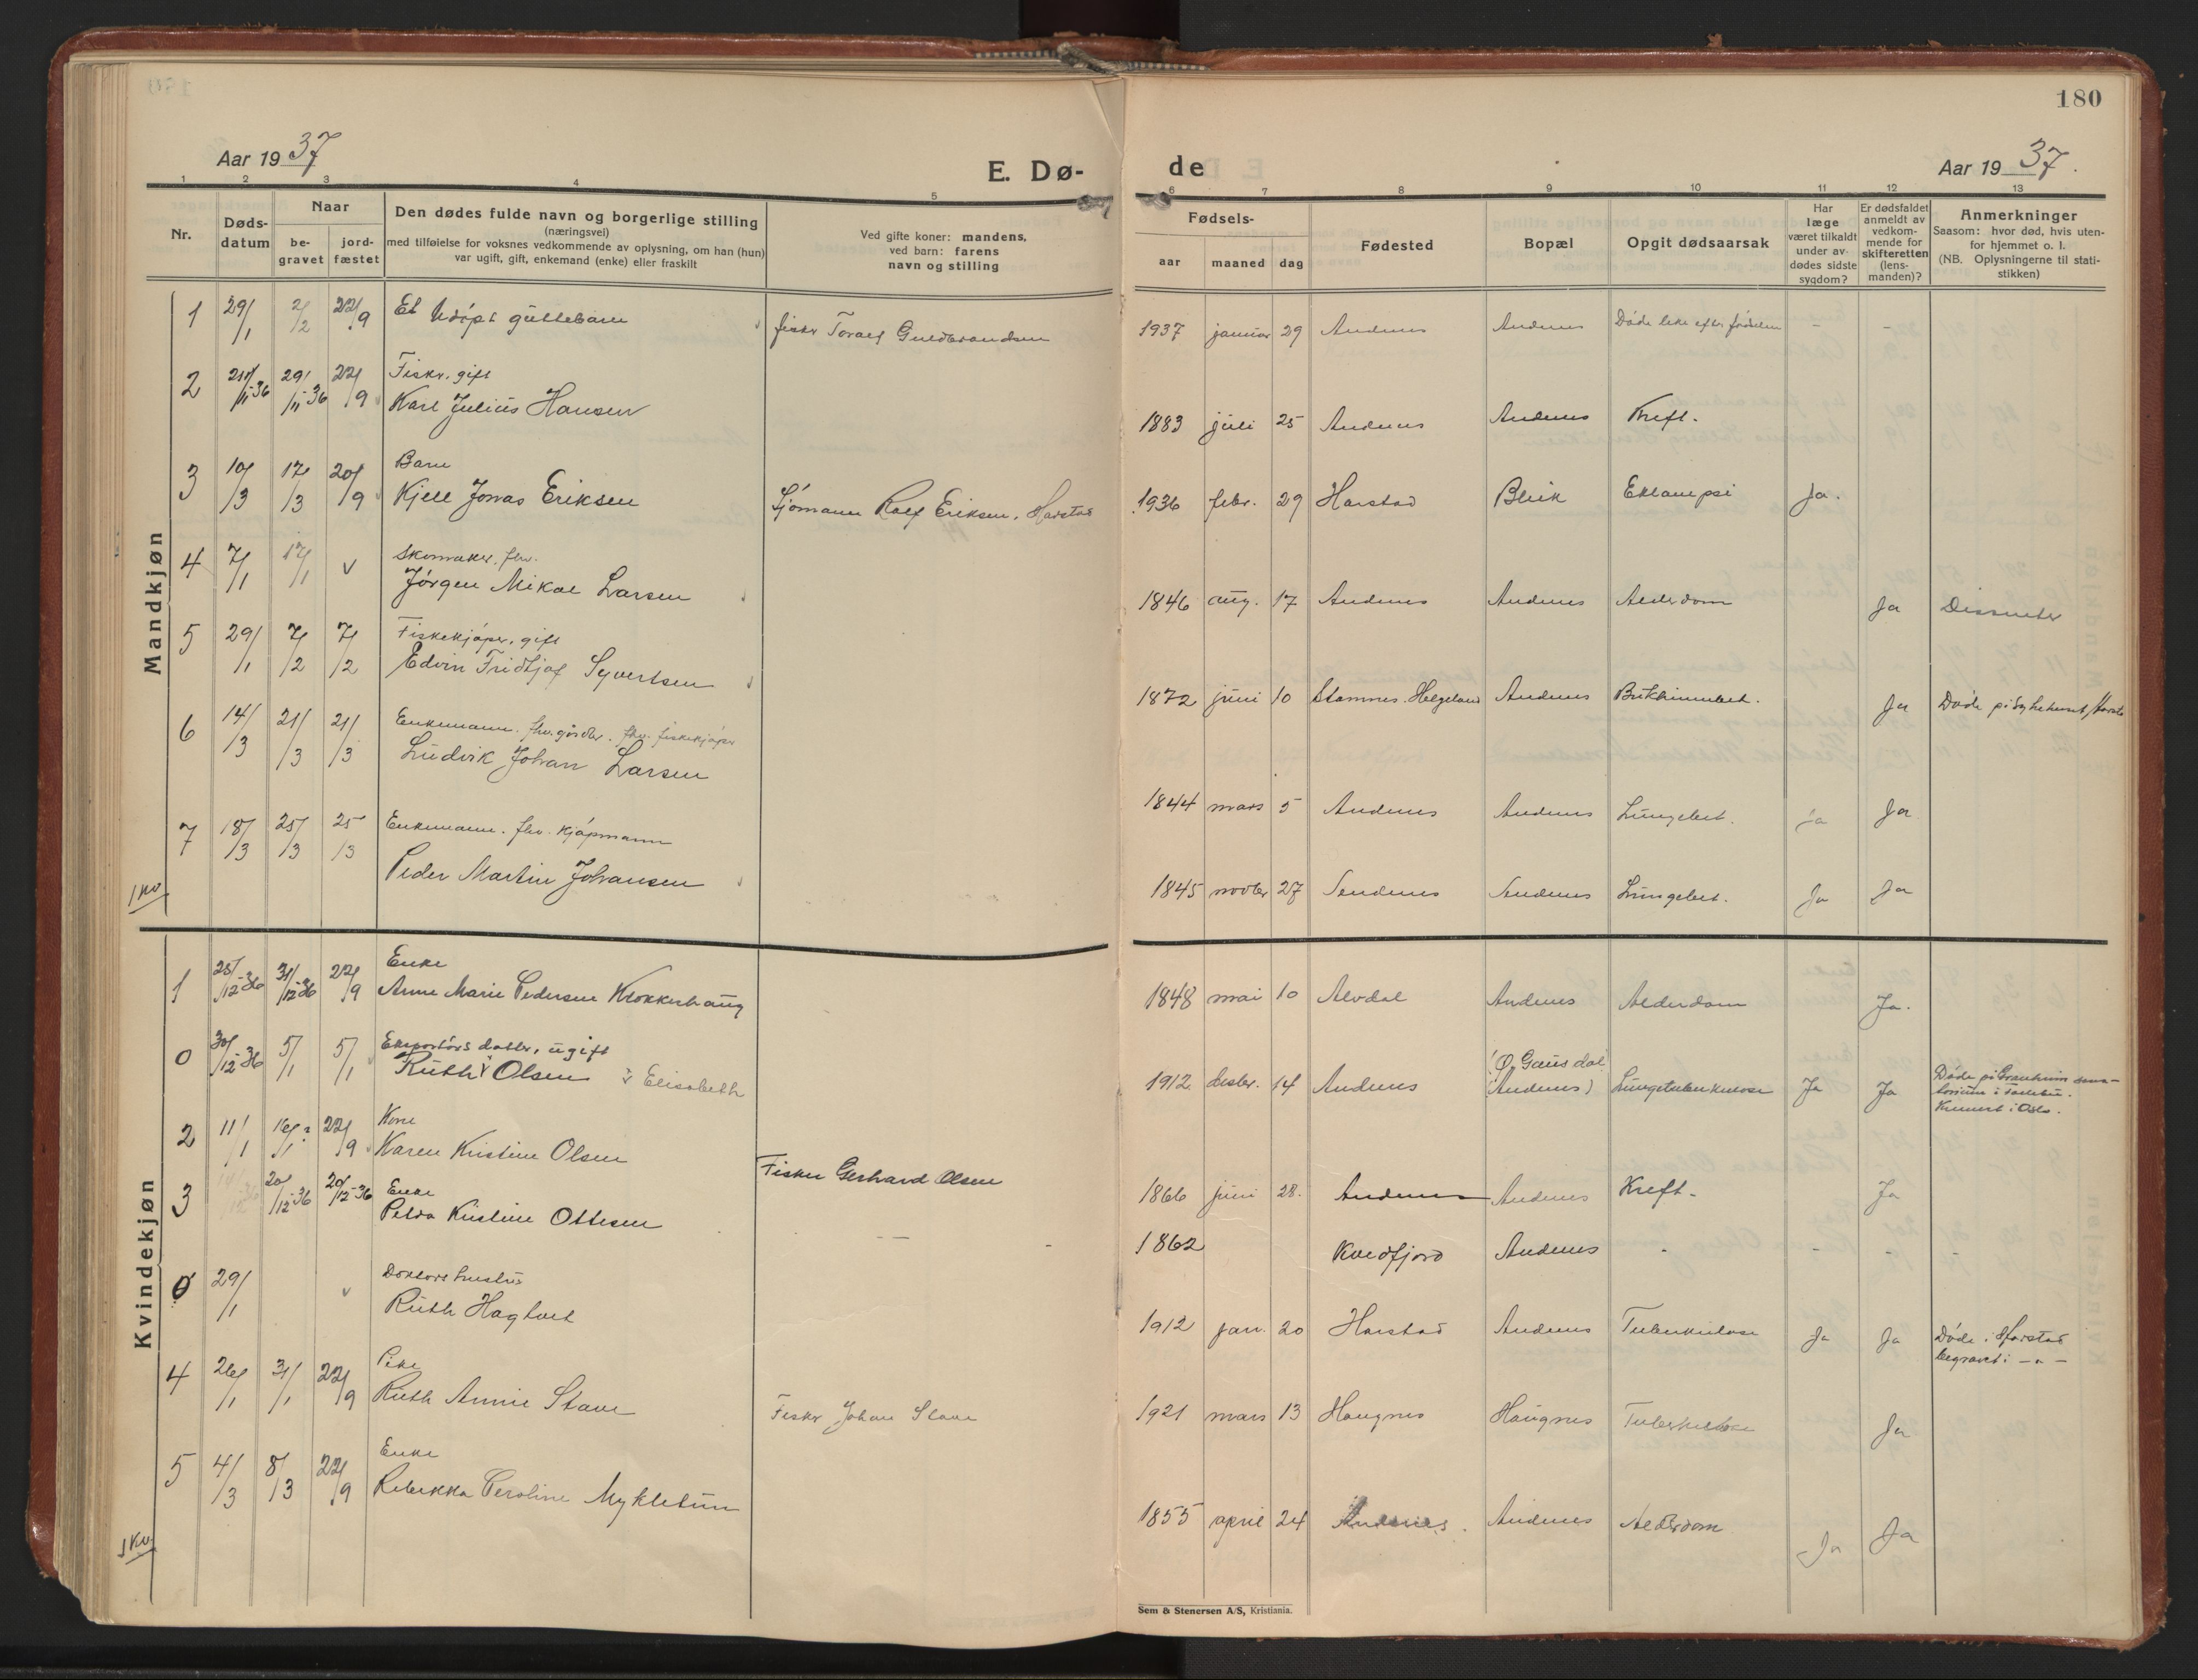 180
Aar 1937
E. Dø-
de
Aar 1937.
1 2 3 4 5 6 7 8 9 10 11 12 13
Nr.
Døds-
datum
Naar
be-
gravet
jord-
fæstet
Den dødes fulde navn og borgerlige stilling
(næringsvei)
med tilføielse for voksnes vedkommende av oplysning, om han (hun)
var ugift, gift, enkemand (enke) eller fraskilt
Ved gifte koner: mandens,
ved barn: farens
navn og stilling
Fødsels-
aar maaned dag
Fødested
Bopæl
Opgit dødsaarsak
Har
læge
været tilkaldt
under av-
dødes sidste
sygdom?
Er dødsfaldet
anmeldt av
vedkom-
mende for
skifteretten
(lens-
manden)?
Anmerkninger
Saasom: hvor død, hvis uten-
for hjemmet o. l.
(NB. Oplysningerne til stati-
stikken)
Mandkjøn
1 29/1 2/2 22/9 Et udøpt guttebarn fisker Toralf Guldbrandsen 1937 januar 29 Andenes Andenes Døde like efter fødselen - -
Fisker, gift
2 /11-36 29/11-36 22/9 Karl Julius Hansen 1883 juli 25 Andenes Andenes Kreft.
Barn
3 10/3 17/3 20/9 Kjell Jonas Eriksen Sjømann Rolf Eriksen, Harstad 1936 febr. 29 Harstad Bleik Eklampsi Ja.
Skomaker, fhv.
4 7/1 17/1 v Jørgen Mikal Larsen 1846 aug. 17 Andenes Andenes Alderdom Ja Dissenter
Fiskekjøper, gift
5 29/1 7/2 7/2 Edvin Fridtjof Syvertsen 1872 juni 10 Stamnes, Helgeland Andenes Bukhinnebet. Ja Døde på sykehuset, Harstad
Enkemann. fhv. gårdbr. fhv. fiskekjøper
6 14/3 21/3 21/3 Ludvik Johan Larsen 1844 mars 5 Andenes Andenes Lungebet. ja Ja
Enkemann. fhv. kjøpmann
7 18/3 25/3 25/3 Peder Martin Johansen 1845 novbr 27 Andenes Andenes Lungebet. Ja Ja
1 kv.
Kvindekjøn
Enke
1 25/12-36 31/12-36 22/9 Anne Marie Pedersen Klokkerhaug 1848 mai 10 Alvdal Andenes Alderdom Ja.
Eksportørs datter, ugift
0 30/12-36 5/1 5/1 Ruth v Olsen v Elisabeth 1912 desbr. 14 Andenes (Ø. Gausdal
Andenes) Lungetuberkulose Ja Ja Døde på Granheim sana-
torium i Follebu.
Kremert i Oslo.
Kone
2 11/1 16/1? 22/9 Karen Kristine Olsen Fisker Gerhard Olsen 1866 juni 28. Andenes Andenes Kreft - Ja
Enke
3 20/12-36 20/12-36 Petra Kristine Ottesen - - 1862 Kvedfjord Andenes - - - -
Doktors hustru
0 29/1 v Ruth Hagtvet 1912 jan. 20 Harstad Andenes Tuberkulose Ja Ja Døde i Harstad
begravet i - " -
Pike
4 26/1 31/1 22/9 Ruth Annie Stave Fisker Johan Stave 1921 mars 13 Haugnes Haugnes Tuberkulose Ja
Enke
5 4/3 8/3 22/9 Rebekka Peroline Myklebun 1855 april 24 Andenes. Andenes Alderdom Ja Ja
1 kv.
Sem & Stenersen A/S, Kristiania.